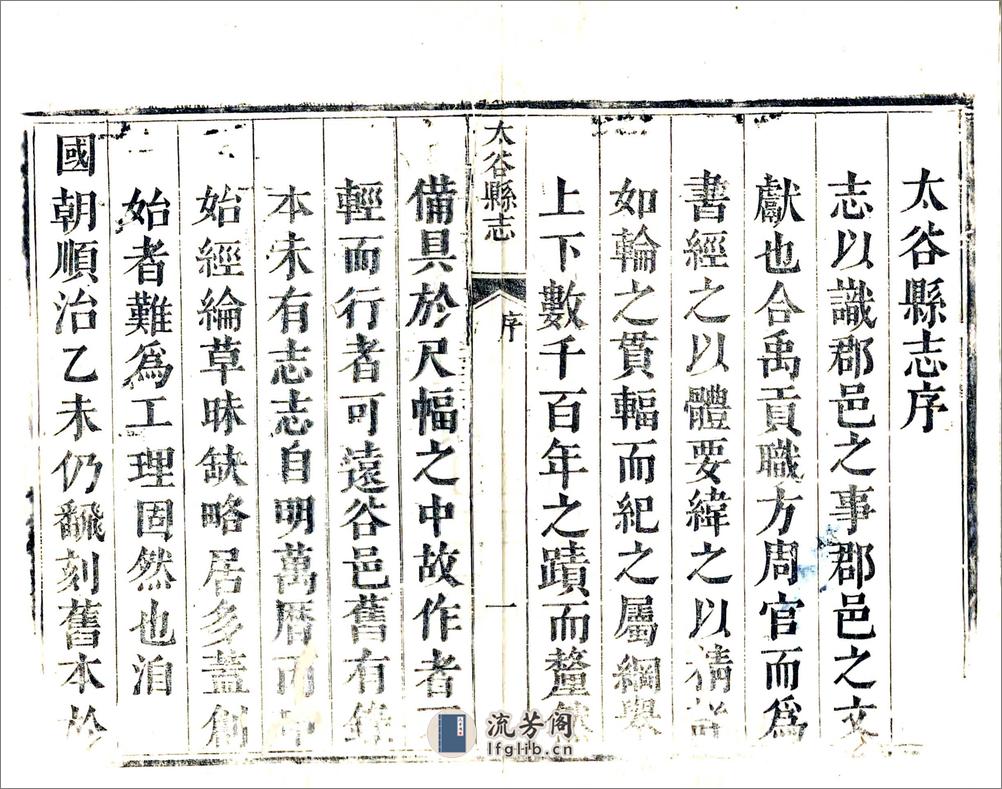 太谷縣志序
志以識郡邑之事郡邑之文
獻也合禹貢職方周官而爲
書經之以體要緯之以精詳
如輪之貫輻而紀之屬綱舉
上下數千百年之蹟而釐然
太谷縣志 序 一
備具於尺幅之中故作者
輕而行者可遠谷邑舊有
本未有志志自明萬曆丙
始經綸草昧缺略居多蓋創
始者難爲工理固然也洎
國朝順治乙未仍飜刻舊本於
流芳阁
lfglib.cn